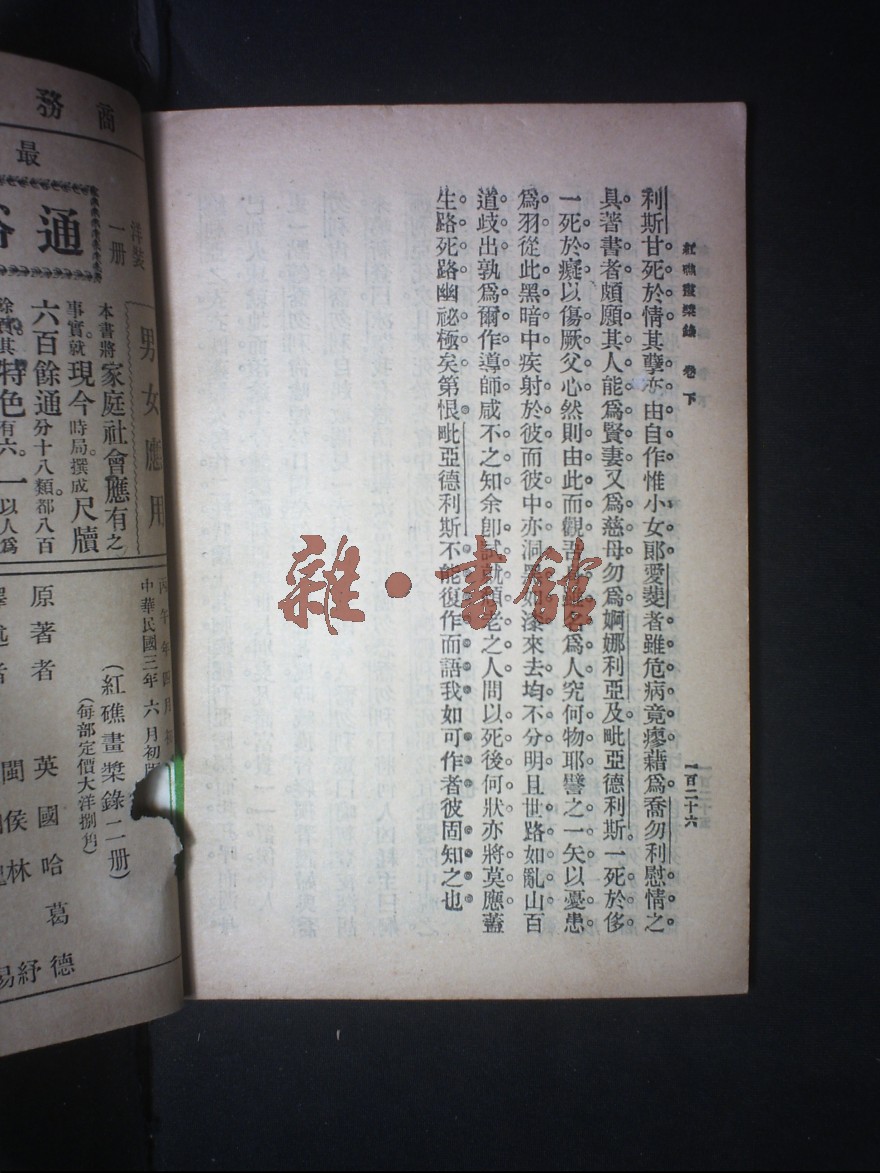 紅礁畫槳錄 卷下
一百二十六
利斯甘死於情其孽亦由自作惟小女郞愛斐者雖危病竟瘳藉爲喬勿利慰情之
具著書者頗願其人能爲賢妻又爲慈母勿爲婀娜利亞及毗亞德利斯一死於侈
一死於癡以傷厥父心然則由此而觀吾身雖名爲人究何物耶譬之一矢以憂患
爲羽從此黑暗中疾射於彼而彼中亦洞黑如漆來去均不分明且世路如亂山百
道歧出孰爲爾作導師咸不之知余卽試就頭老之人間以死後何狀亦將莫應蓋
生路死路幽祕極矣第恨毗亞德利斯不能復作而語我如可作者彼固知之也
雜·書館
商務
最
通
洋裝一册
男女應用
本書將家庭社會應有之
事實就現今時局撰成尺牘
六百餘通分十八類都八百
其特色有六。一以人爲
丙午年四月
中華民國三年六月初版
(紅礁畫槳錄二册)
(每部定價大洋捌角)
原著者 英國哈葛德
者 閩侯林紓
易